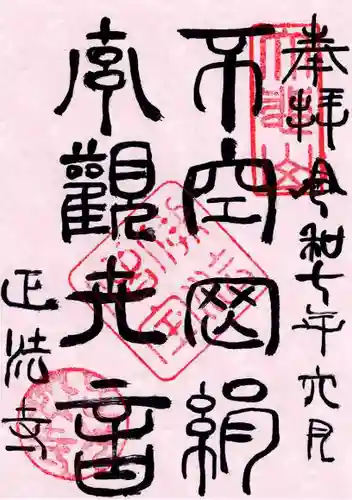 奉拝 令和七年六月
不空羂
索觀世音
正法寺